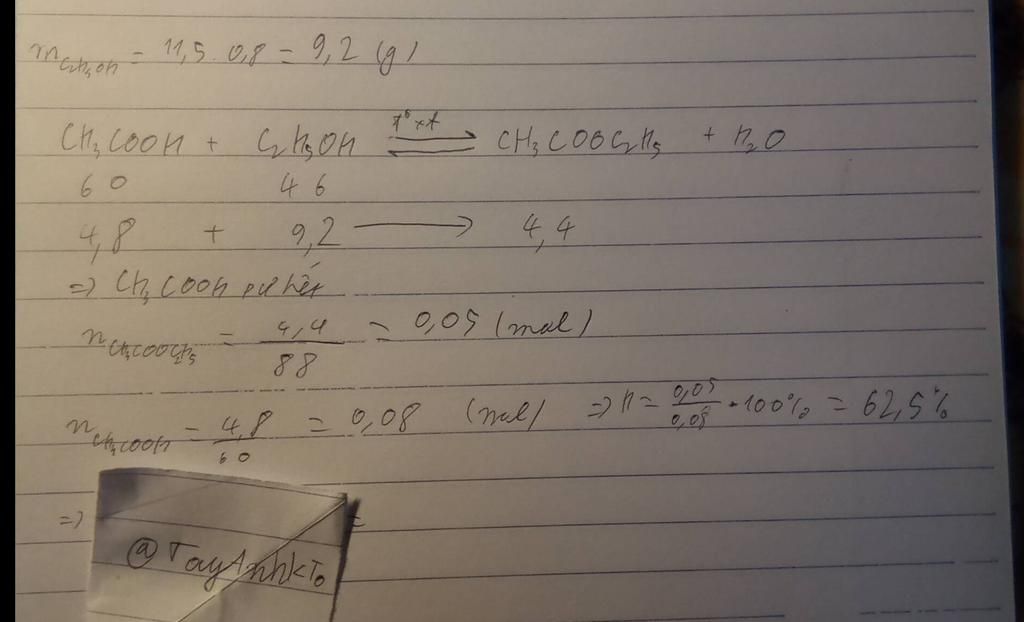 mC2H5OH = 11,5 . 0,8 = 9,2 (g)
CH3COOH + C2H5OH ⇌ CH3COOC2H5 + H2O
t° xt
60 46
4,8 + 9,2 → 4,4
=) CH3COOH pư hết
nCH3COOC2H5 = 4,4/88 = 0,05 (mol)
nCH3COOH = 4,8/60 = 0,08 (mol) => H = 0,05/0,08 . 100% = 62,5%
=) =
@TayAnhkTo